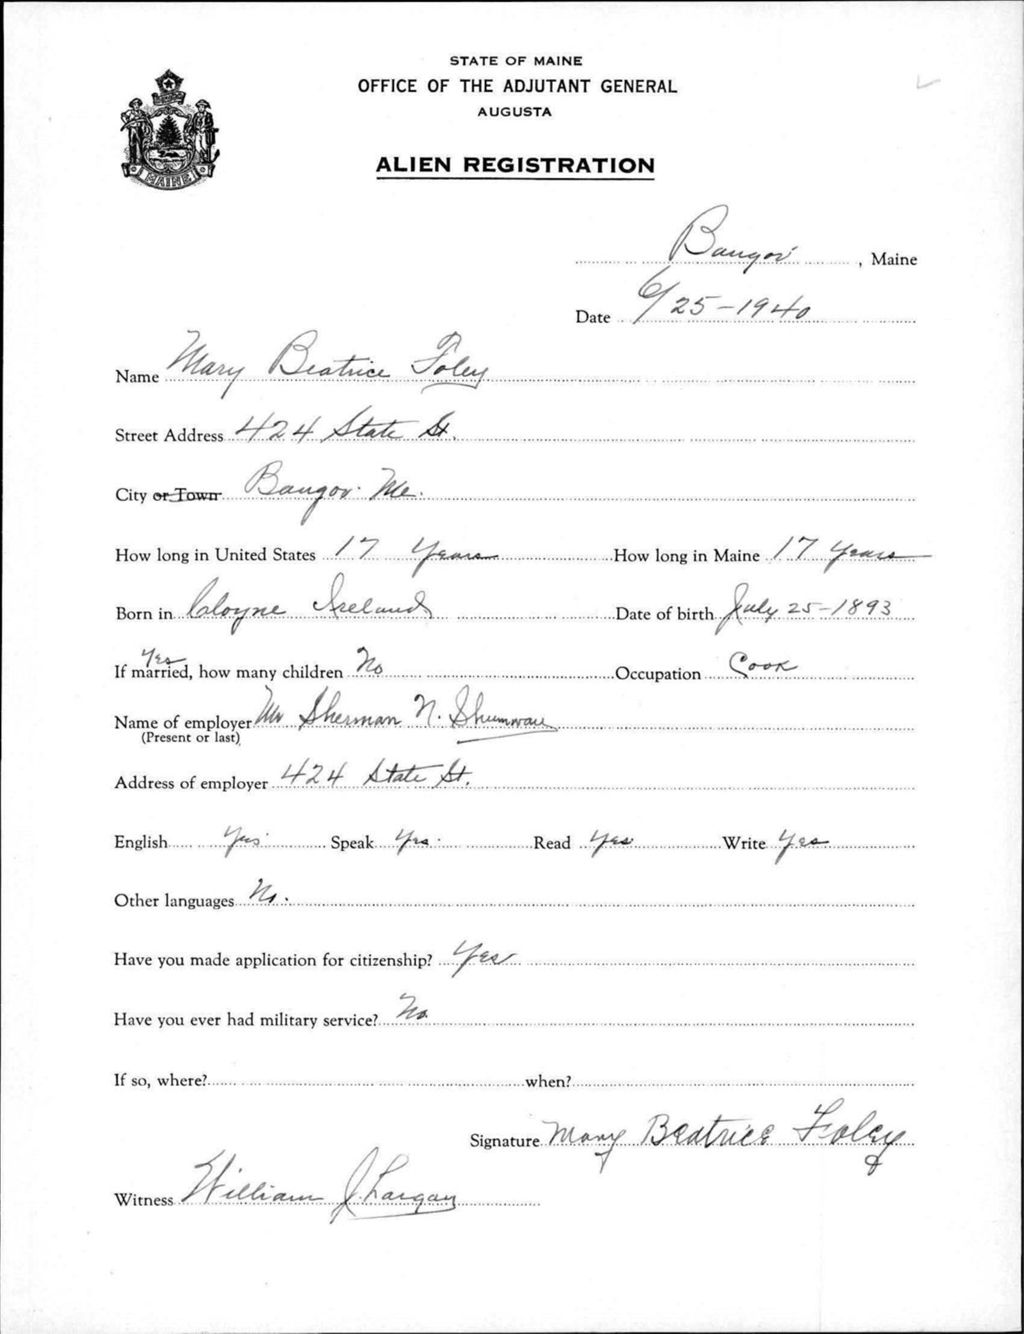 STATE OF MAINE
OFFICE OF THE ADJUTANT GENERAL
AUGUSTA
ALIEN REGISTRATION
MAINE
Bangor, Maine
Date 6/25-1940
Name Mary Beatrice Foley
Street Address 424 State St.
City or Town Bangor Me.
How long in United States 17 Years How long in Maine 17 Years
Born in Cloyne Ireland Date of birth July 25-1893
Yes
If married, how many children No Occupation Cook
Name of employer Mr Sherman N. Shumway
(Present or last)
Address of employer 424 State St.
English Yes Speak Yes Read Yes Write Yes
Other languages No.
Have you made application for citizenship? Yes
Have you ever had military service? No
If so, where? when?
Signature Mary Beatrice Foley
Witness William J. Largay